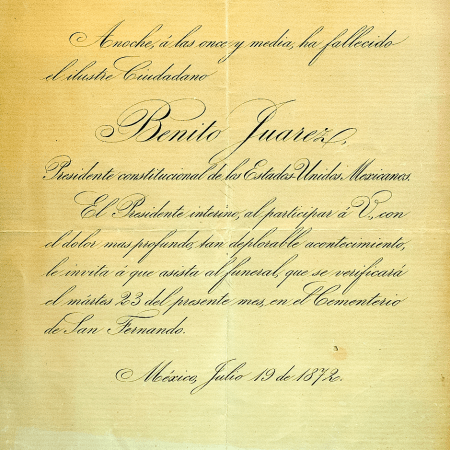 Anoche, á las once y media, ha fallecido
el ilustre Ciudadano
Benito Juarez,
Presidente constitucional de los Estados-Unidos Mexicanos.
El Presidente interino, al participar á V., con
el dolor mas profundo, tan deplorable acontecimiento,
le invita á que asista al funeral, que se verificará
el mártes 23 del presente mes, en el Cementerio
de San Fernando.
México, Julio 19 de 1872.